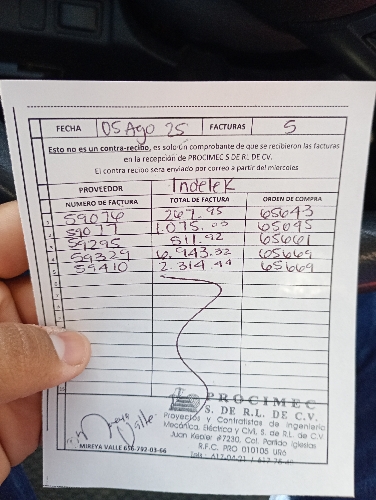 FECHA 05 Ago 25 FACTURAS 5
Esto no es un contra-recibo, es solo un comprobante de que se recibieron las facturas
en la recepción de PROCIMEC S DE RL DE CV.
El contra recibo sera enviado por correo a partir del miercoles
PROVEEDOR Indelek
NUMERO DE FACTURA TOTAL DE FACTURA ORDEN DE COMPRA
59076 267.95 65643
59077 1.075.03 65645
59295 511.92 65661
59329 6.943.32 65669
59410 2.314.44 65669
PROCIMEC
S. DE R.L. DE C.V.
Proyectos y Contratistas de Ingeniería
Mecánica, Eléctrica y Civil, S. de R.L. de C.V.
Juan Kepler #7230, Col. Partido Iglesias
R.F.C. PRO 010105 UR6
Mireya Valle
MIREYA VALLE 656-792-03-66